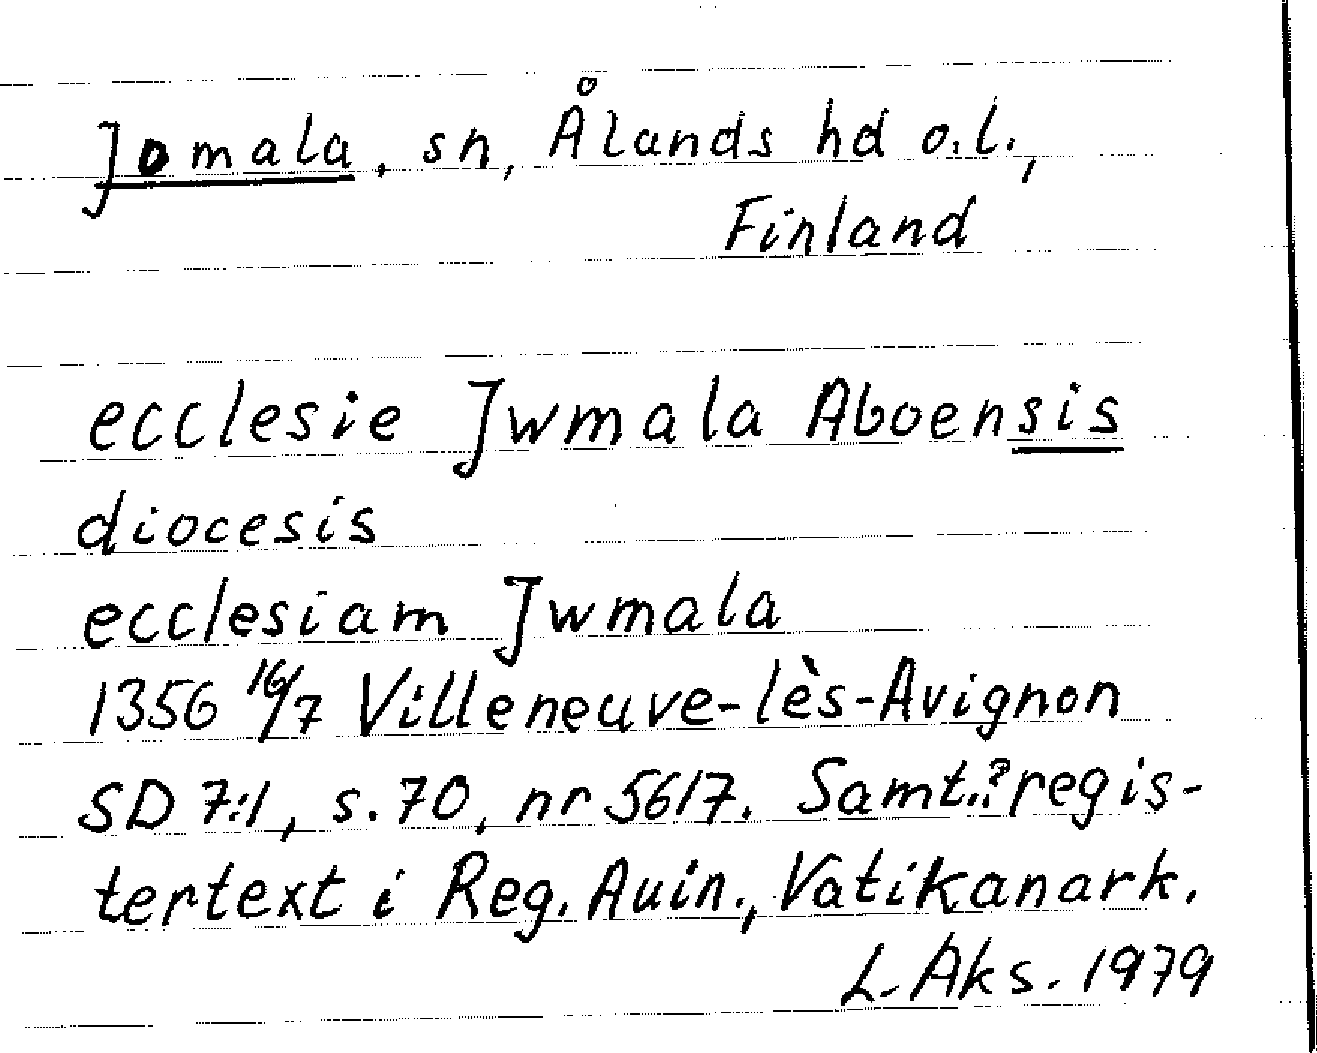 Jomala, sn, Ålands hd o.l.,
Finland
ecclesie Jwmala Aboensis
diocesis
ecclesiam Jwmala
1356 16/7 Villeneuve-lès-Avignon
SD 7:1, s. 70, nr 5617. Samt.? regis-
tertext i Reg. Auin., Vatikanark.
L. Aks. 1979